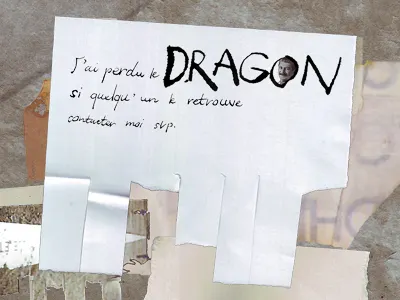 J'ai perdu le DRAGON
si quelqu'un le retrouve
contacter moi svp.